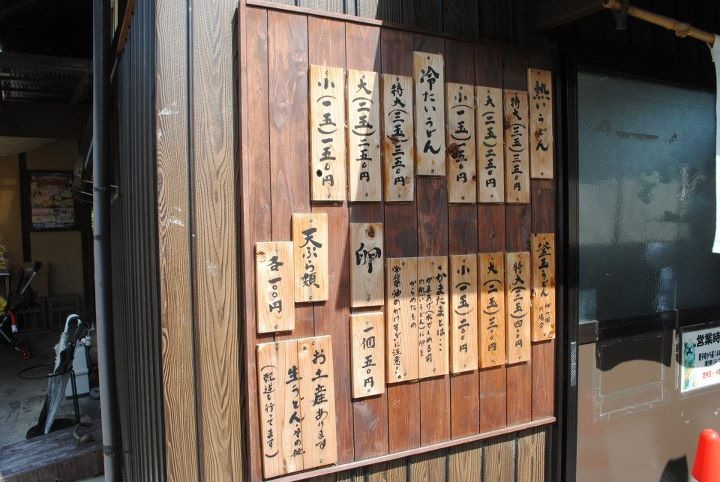 熱いうどん
特大(三玉)三五〇円
大(二玉)二五〇円
小(一玉)一五〇円
冷たいうどん
特大(三玉)三五〇円
大(二玉)二五〇円
小(一玉)一五〇円
釜玉うどん
特大(三玉)四〇〇円
大(二玉)三〇〇円
小(一玉)二〇〇円
*かまたまとは…
からめたもの
卵
一個五〇円
天ぷら類
各一〇〇円
お土産あります
生うどん・その他
(配送も行ってます)
営業時